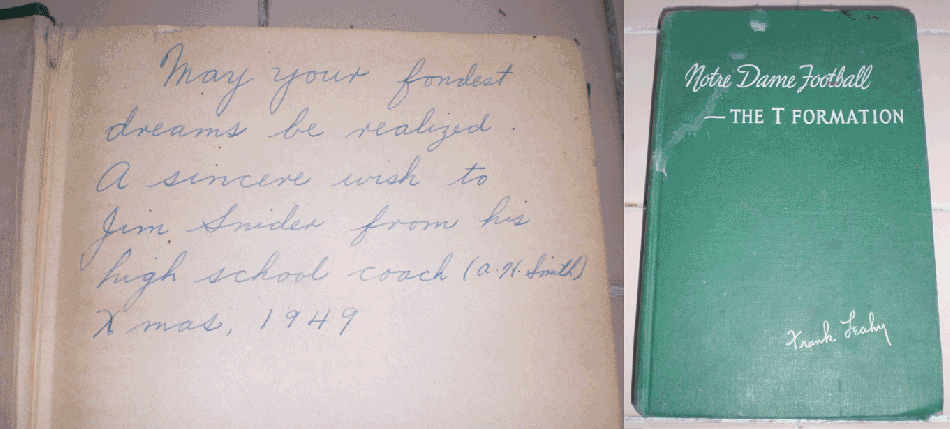 May your fondest
dreams be realized.
A sincere wish to
Jim Snider from his
high school coach (A. H. Smith)
Xmas, 1949
Notre Dame Football
— THE T FORMATION
Frank Leahy